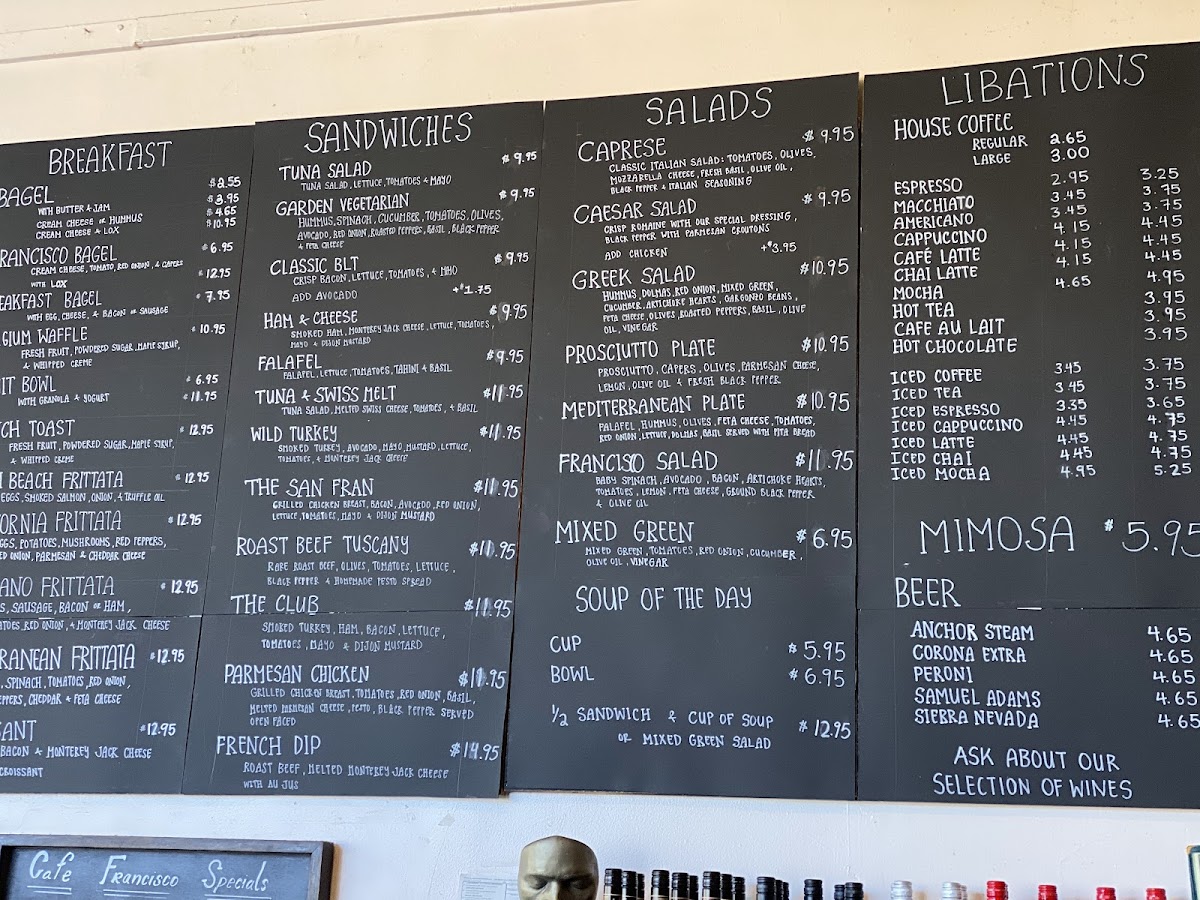 BREAKFAST
BAGEL $2.55
WITH BUTTER & JAM $3.95
CREAM CHEESE OR HUMMUS $4.65
CREAM CHEESE & LOX $10.95
FRANCISCO BAGEL $6.95
CREAM CHEESE, TOMATO, RED ONION, & CAPERS
WITH LOX $12.95
EAKFAST BAGEL $7.95
WITH EGG, CHEESE, & BACON OR SAUSAGE
GIUM WAFFLE $10.95
FRESH FRUIT, POWDERED SUGAR, MAPLE SYRUP,
& WHIPPED CREME
IT BOWL $6.95
WITH GRANOLA & YOGURT $11.95
CH TOAST $12.95
FRESH FRUIT, POWDERED SUGAR, MAPLE SYRUP,
& WHIPPED CREME
H BEACH FRITTATA $12.95
EGGS, SMOKED SALMON, ONION, & TRUFFLE OIL
FORNIA FRITTATA $12.95
GGS, POTATOES, MUSHROOMS, RED PEPPERS,
ED ONION, PARMESAN & CHEDDAR CHEESE
ANO FRITTATA $12.95
S, SAUSAGE, BACON OR HAM,
ATOES, RED ONION, & MONTEREY JACK CHEESE
RANEAN FRITTATA $12.95
, SPINACH, TOMATOES, RED ONION,
EPPERS, CHEDDAR & FETA CHEESE
SANT $12.95
BACON & MONTEREY JACK CHEESE
CROISSANT
SANDWICHES
TUNA SALAD $9.95
TUNA SALAD, LETTUCE, TOMATOES & MAYO
GARDEN VEGETARIAN $9.95
HUMMUS, SPINACH, CUCUMBER, TOMATOES, OLIVES,
AVOCADO, RED ONION, ROASTED PEPPERS, BASIL, BLACK PEPPER
& FETA CHEESE
CLASSIC BLT $9.95
CRISP BACON, LETTUCE, TOMATOES, & MAYO
ADD AVOCADO +$1.75
HAM & CHEESE $9.95
SMOKED HAM, MONTEREY JACK CHEESE, LETTUCE, TOMATOES,
MAYO & DIJON MUSTARD
FALAFEL $9.95
FALAFEL, LETTUCE, TOMATOES, TAHINI & BASIL
TUNA & SWISS MELT $11.95
TUNA SALAD, MELTED SWISS CHEESE, TOMATOES, & BASIL
WILD TURKEY $11.95
SMOKED TURKEY, AVOCADO, MAYO, MUSTARD, LETTUCE,
TOMATOES, & MONTEREY JACK CHEESE
THE SAN FRAN $11.95
GRILLED CHICKEN BREAST, BACON, AVOCADO, RED ONION,
LETTUCE, TOMATOES, MAYO & DIJON MUSTARD
ROAST BEEF TUSCANY $11.95
RARE ROAST BEEF, OLIVES, TOMATOES, LETTUCE,
BLACK PEPPER & HOMEMADE PESTO SPREAD
THE CLUB $11.95
SMOKED TURKEY, HAM, BACON, LETTUCE,
TOMATOES, MAYO & DIJON MUSTARD
PARMESAN CHICKEN $11.95
GRILLED CHICKEN BREAST, TOMATOES, RED ONION, BASIL,
MELTED PARMESAN CHEESE, PESTO, BLACK PEPPER SERVED
OPEN FACED
FRENCH DIP $14.95
ROAST BEEF, MELTED MONTEREY JACK CHEESE
WITH AU JUS
SALADS
CAPRESE $9.95
CLASSIC ITALIAN SALAD: TOMATOES, OLIVES,
MOZZARELLA CHEESE, FRESH BASIL, OLIVE OIL,
BLACK PEPPER & ITALIAN SEASONING
CAESAR SALAD $9.95
CRISP ROMAINE WITH OUR SPECIAL DRESSING,
BLACK PEPPER WITH PARMESAN CROUTONS
ADD CHICKEN +$3.95
GREEK SALAD $10.95
HUMMUS, DOLMAS, RED ONION, MIXED GREEN,
CUCUMBER, ARTICHOKE HEARTS, GARGONZO BEANS,
FETA CHEESE, OLIVES, ROASTED PEPPERS, BASIL, OLIVE
OIL, VINEGAR
PROSCIUTTO PLATE $10.95
PROSCIUTTO, CAPERS, OLIVES, PARMESAN CHEESE,
LEMON, OLIVE OIL & FRESH BLACK PEPPER
MEDITERRANEAN PLATE $10.95
FALAFEL, HUMMUS, OLIVES, FETA CHEESE, TOMATOES,
RED ONION, LETTUCE, DOLMAS, BASIL SERVED WITH PITA BREAD
FRANCISCO SALAD $11.95
BABY SPINACH, AVOCADO, BACON, ARTICHOKE HEARTS,
TOMATOES, LEMON, FETA CHEESE, GROUND BLACK PEPPER
& OLIVE OIL
MIXED GREEN $6.95
MIXED GREEN, TOMATOES, RED ONION, CUCUMBER,
OLIVE OIL, VINEGAR
SOUP OF THE DAY
CUP $5.95
BOWL $6.95
1/2 SANDWICH & CUP OF SOUP $12.95
OR MIXED GREEN SALAD
LIBATIONS
HOUSE COFFEE
REGULAR 2.65
LARGE 3.00
ESPRESSO 2.95 3.25
MACCHIATO 3.45 3.75
AMERICANO 3.45 3.75
CAPPUCCINO 4.15 4.45
CAFÉ LATTE 4.15 4.45
CHAI LATTE 4.15 4.45
MOCHA 4.65 4.95
HOT TEA 3.95
CAFE AU LAIT 3.95
HOT CHOCOLATE 3.95
ICED COFFEE 3.45 3.75
ICED TEA 3.45 3.75
ICED ESPRESSO 3.35 3.65
ICED CAPPUCCINO 4.45 4.75
ICED LATTE 4.45 4.75
ICED CHAI 4.45 4.75
ICED MOCHA 4.95 5.25
MIMOSA $5.95
BEER
ANCHOR STEAM 4.65
CORONA EXTRA 4.65
PERONI 4.65
SAMUEL ADAMS 4.65
SIERRA NEVADA 4.65
ASK ABOUT OUR
SELECTION OF WINES
Cafe Francisco Specials